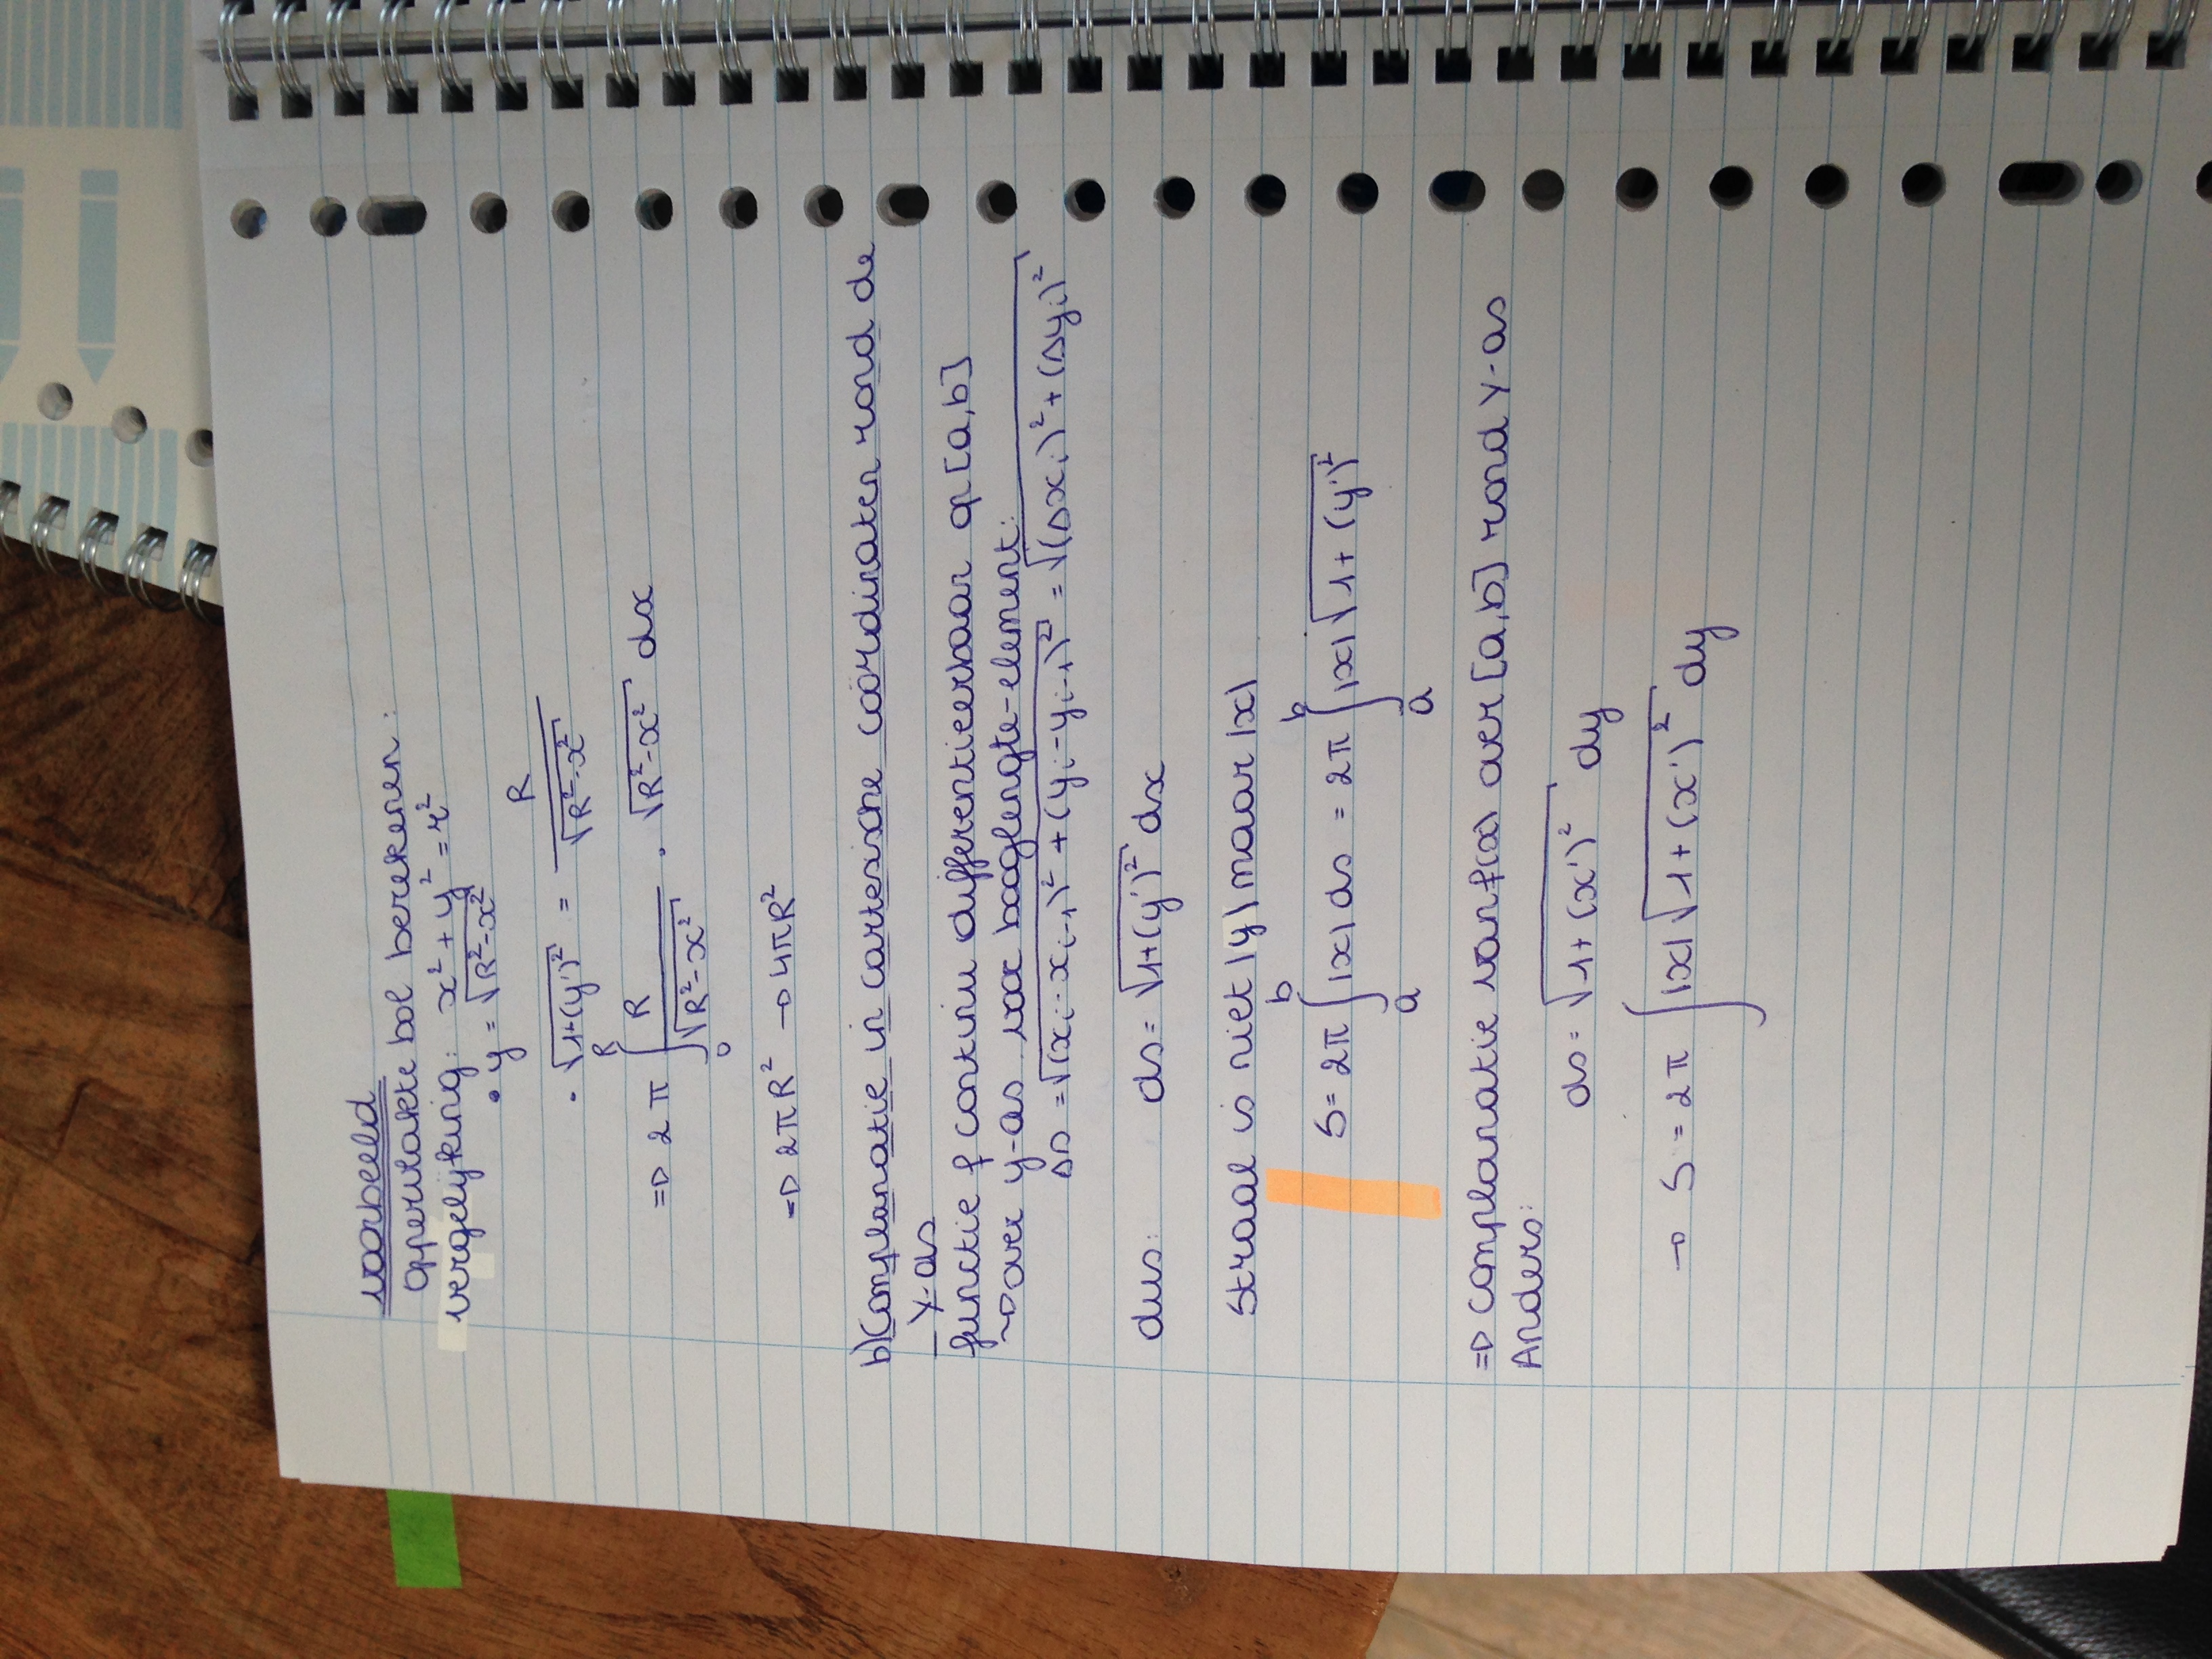 voorbeeld
oppervlakte bol berekenen:
vergelijking: x² + y² = r²
• y = √(R²-x²)
• √(1+(y')²) = R / √(R²-x²)
=> 2π ∫₀ᴿ R / √(R²-x²) · √(R²-x²) dx
=> 2πR² → 4πR²
b) Complanatie in cartesische coördinaten rond de
Y-as
functie f continu differentieerbaar op [a,b]
→ over y-as voor booglengte-element:
Δs = √((xᵢ-xᵢ₋₁)² + (yᵢ-yᵢ₋₁)²) = √((Δxᵢ)² + (Δyᵢ)²)
dus: ds = √(1+(y')²) dx
Straal is niet |y| maar |x|
S = 2π ∫ₐᵇ |x| ds = 2π ∫ₐᵇ |x| √(1+(y')²)
=> Complanatie van f(x) over [a,b] rond Y-as
Anders:
ds = √(1+(x')²) dy
→ S = 2π ∫ |x| √(1+(x')²) dy